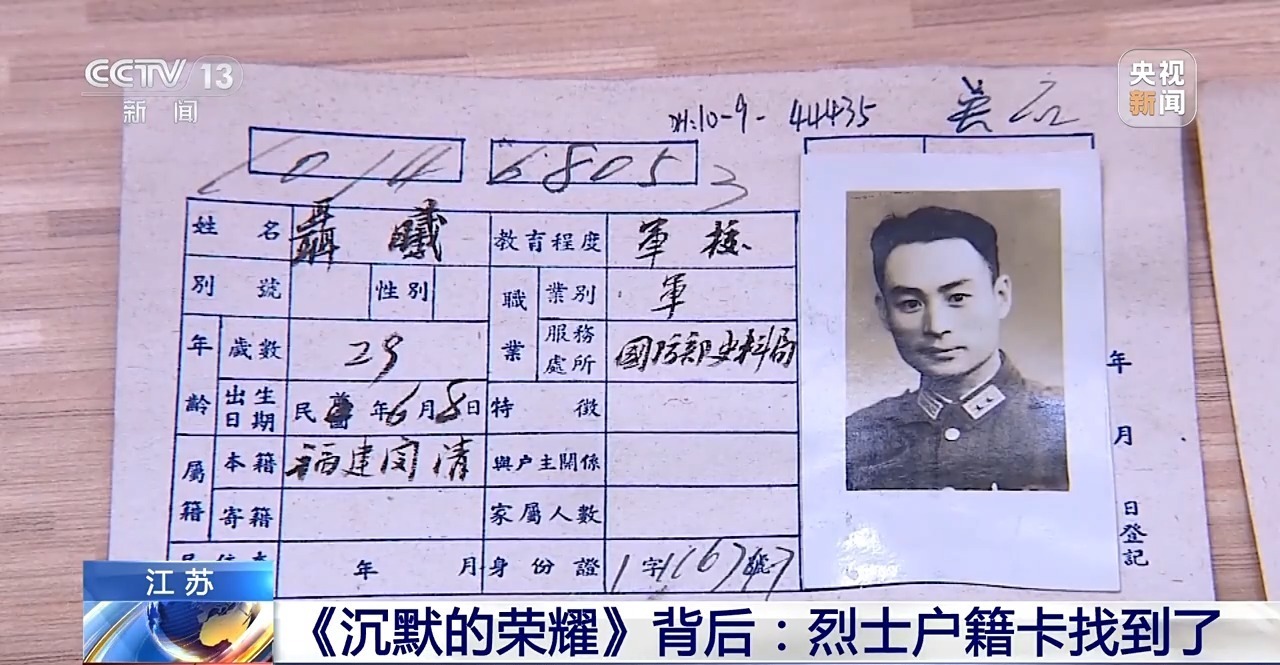 CCTV 13
新闻
央视
新闻
10-9- 44435
姓名 聶曦 教育程度 軍校
別號 性別 職業 業別 軍
年齡 歲數 29 服務處所 國防部史料局
出生日期 民國 年6月8日 特徵
屬籍 本籍 福建閩清 與户主關係
寄籍 家屬人數
年 月 身份證 字 號
年
月
日登記
江苏
《沉默的荣耀》背后：烈士户籍卡找到了